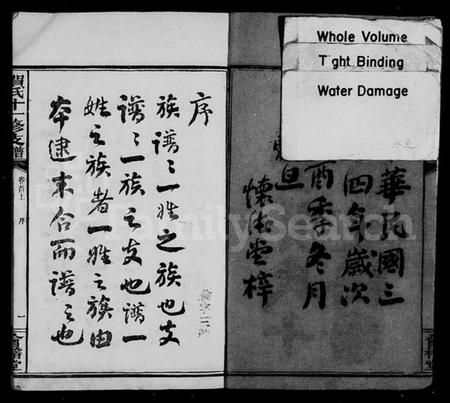 Whole Volume
Tight Binding
Water Damage
華民國三
四年歲次
酉季冬月
旦
懷德堂梓
序
族譜之一姓之族也支
譜之一族之支也譜一
姓之族者一姓之族由
本逮末合而譜之也
氏十一修支譜
卷首上 序
一
FamilySearch